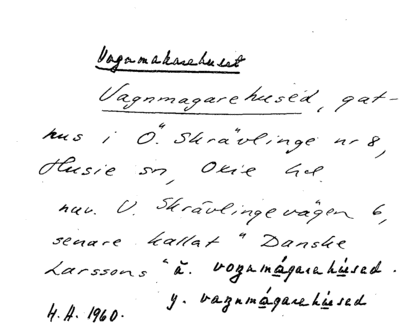 Vagnmakarehuset
Vagnmagarehuséd, gat-
hus i Ö. Skrävlinge nr 8,
Husie sn, Oxie hd.
nuv. V. Skrävlingevägen 6,
senare kallat "Danske
Larssons" ä. vognmágarehúsed.
y. vagnmágarehúsed
H. A. 1960.